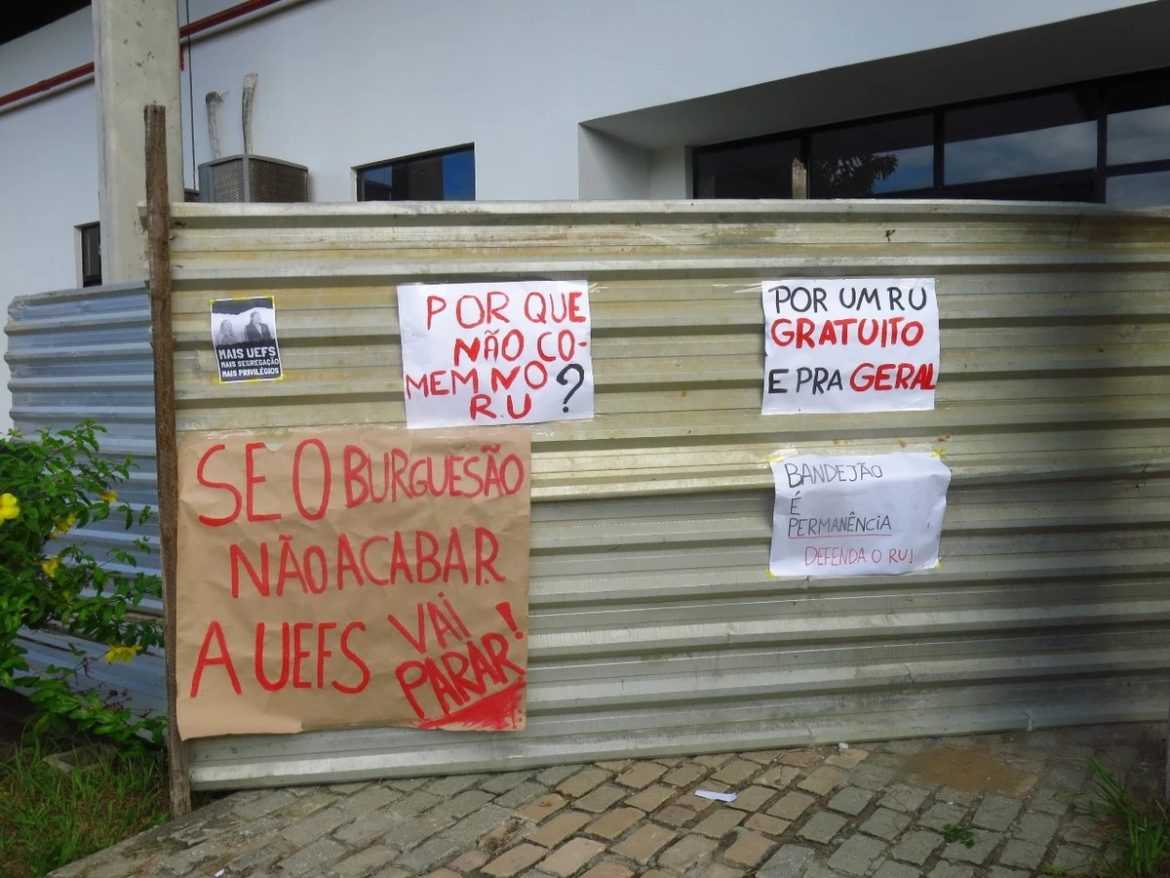 MAIS UEFS
MAIS SEGREGAÇÃO
MAIS PRIVILÉGIOS
POR QUE
NÃO CO-
MEM NO
R.U ?
POR UM RU
GRATUITO
E PRA GERAL
SE O BURGUESÃO
NÃO ACABAR
A UEFS VAI
PARAR!
BANDEJÃO
É
PERMANÊNCIA
DEFENDA O RU!